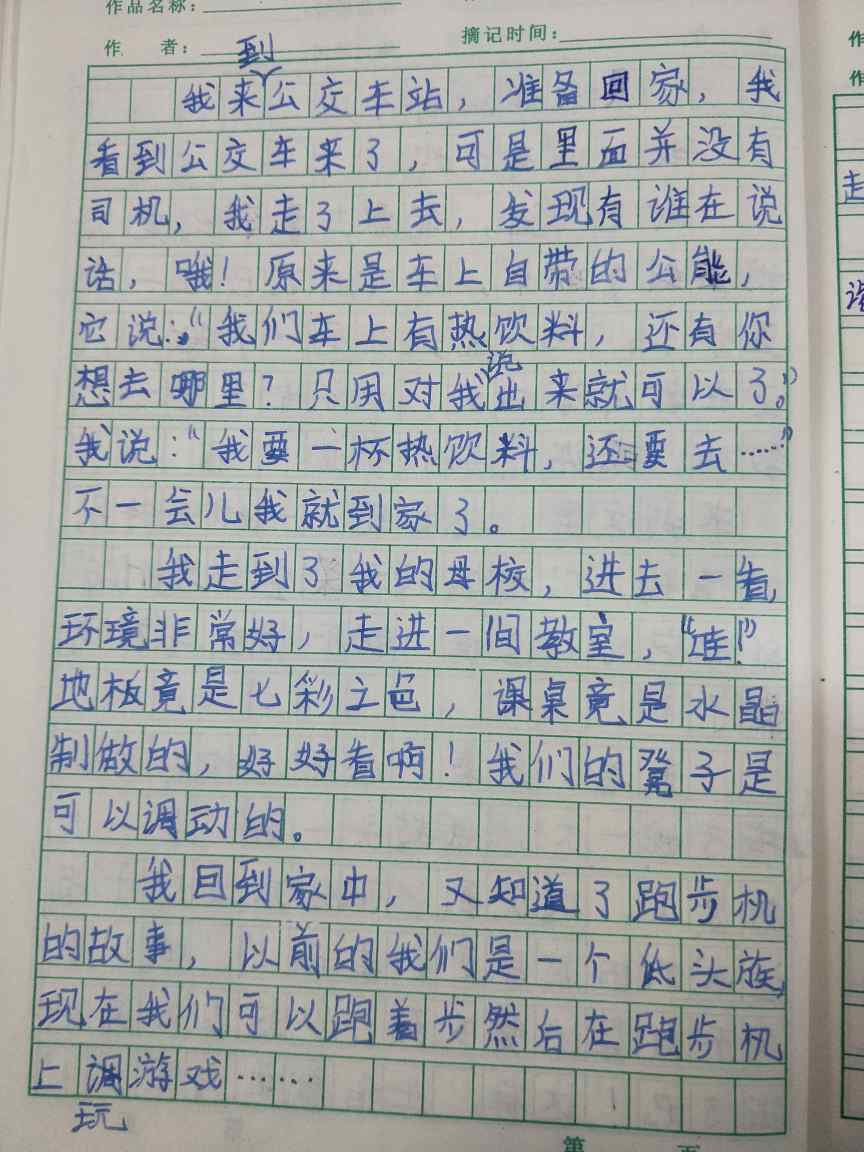 作品名称：
作 者： 摘记时间：
我来到公交车站，准备回家，我
看到公交车来了，可是里面并没有
司机，我走了上去，发现有谁在说
话，哦！原来是车上自带的公能，
它说：“我们车上有热饮料，还有你
想去哪里？只用对我说出来就可以了。”
我说：“我要一杯热饮料，还要去……”
不一会儿我就到家了。
我走到了我的母校，进去一看，
环境非常好，走进一间教室，“哇！”
地板竟是七彩之色，课桌竟是水晶
制做的，好好看啊！我们的凳子是
可以调动的。
我回到家中，又知道了跑步机
的故事，以前的我们是一个低头族，
现在我们可以跑着步然后在跑步机
上调游戏……
玩
第 页
作
作
走